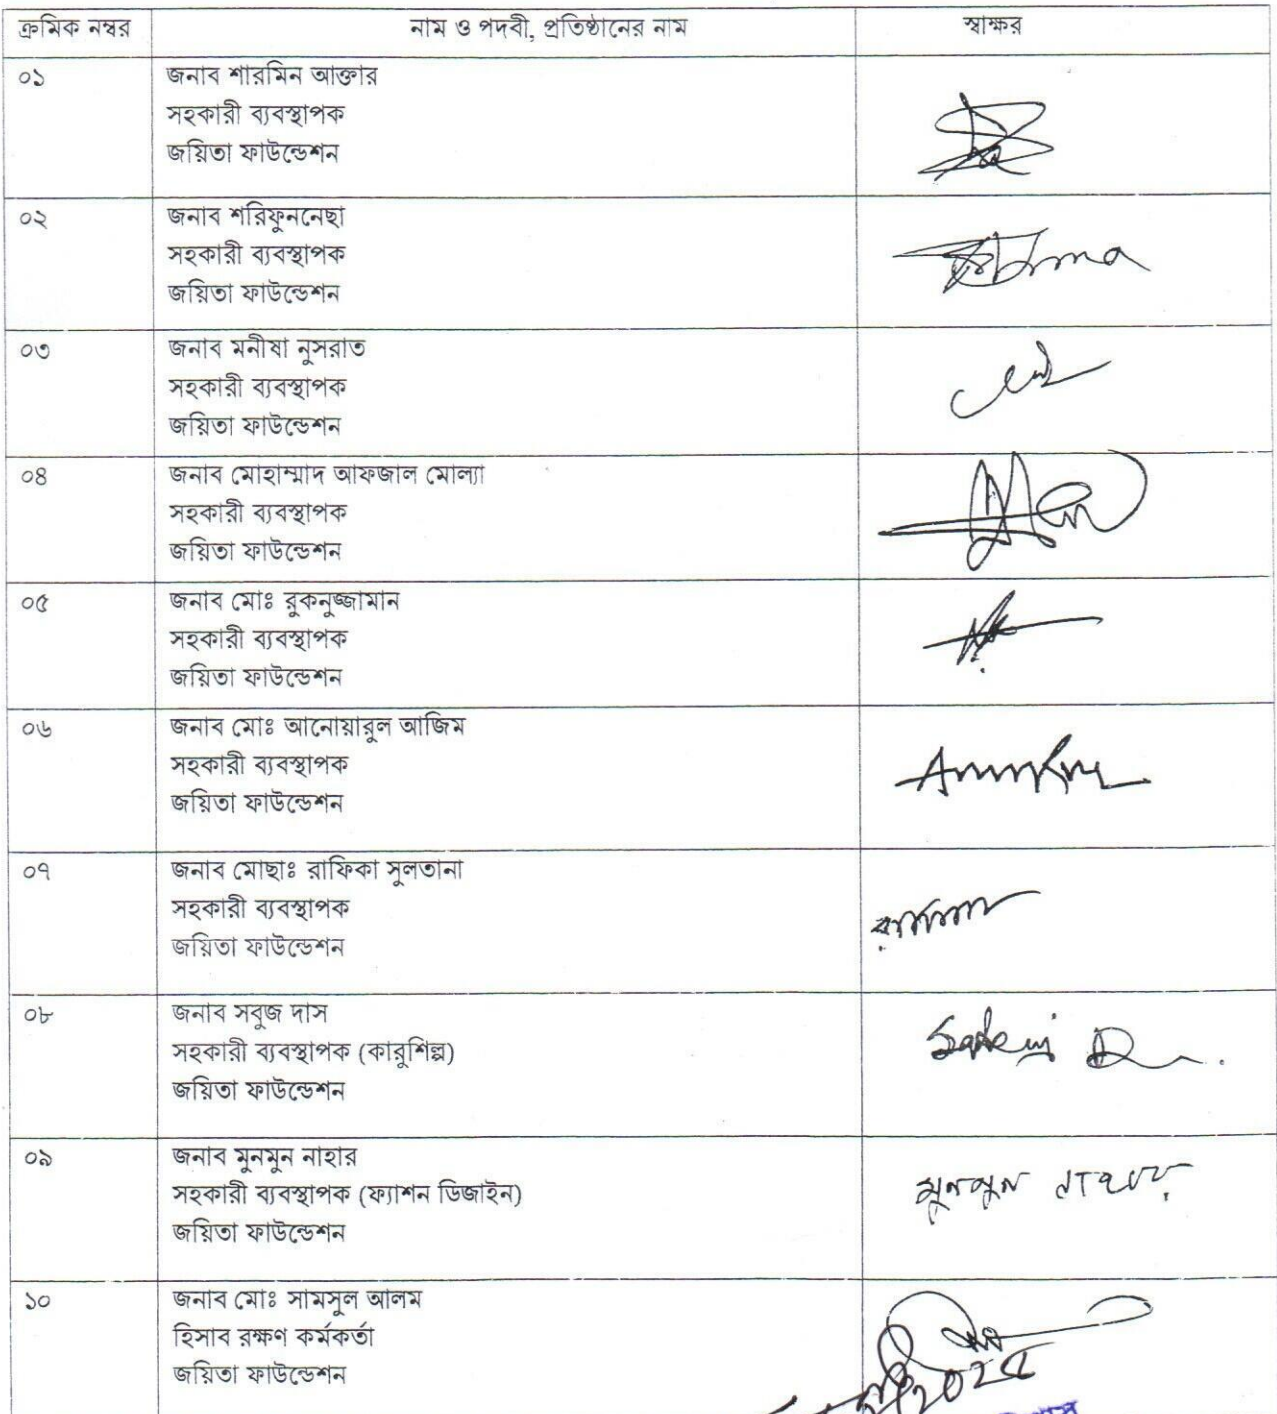 ক্রমিক নম্বর নাম ও পদবী, প্রতিষ্ঠানের নাম স্বাক্ষর
০১ জনাব শারমিন আক্তার
সহকারী ব্যবস্থাপক
জয়িতা ফাউন্ডেশন
০২ জনাব শরিফুননেছা
সহকারী ব্যবস্থাপক
জয়িতা ফাউন্ডেশন
০৩ জনাব মনীষা নুসরাত
সহকারী ব্যবস্থাপক
জয়িতা ফাউন্ডেশন
০৪ জনাব মোহাম্মাদ আফজাল মোল্যা
সহকারী ব্যবস্থাপক
জয়িতা ফাউন্ডেশন
০৫ জনাব মোঃ রুকনুজ্জামান
সহকারী ব্যবস্থাপক
জয়িতা ফাউন্ডেশন
০৬ জনাব মোঃ আনোয়ারুল আজিম
সহকারী ব্যবস্থাপক
জয়িতা ফাউন্ডেশন
০৭ জনাব মোছাঃ রাফিকা সুলতানা
সহকারী ব্যবস্থাপক
জয়িতা ফাউন্ডেশন
০৮ জনাব সবুজ দাস
সহকারী ব্যবস্থাপক (কারুশিল্প)
জয়িতা ফাউন্ডেশন
০৯ জনাব মুনমুন নাহার
সহকারী ব্যবস্থাপক (ফ্যাশন ডিজাইন) মুনমুন নাহার
জয়িতা ফাউন্ডেশন
১০ জনাব মোঃ সামসুল আলম
হিসাব রক্ষণ কর্মকর্তা
জয়িতা ফাউন্ডেশন